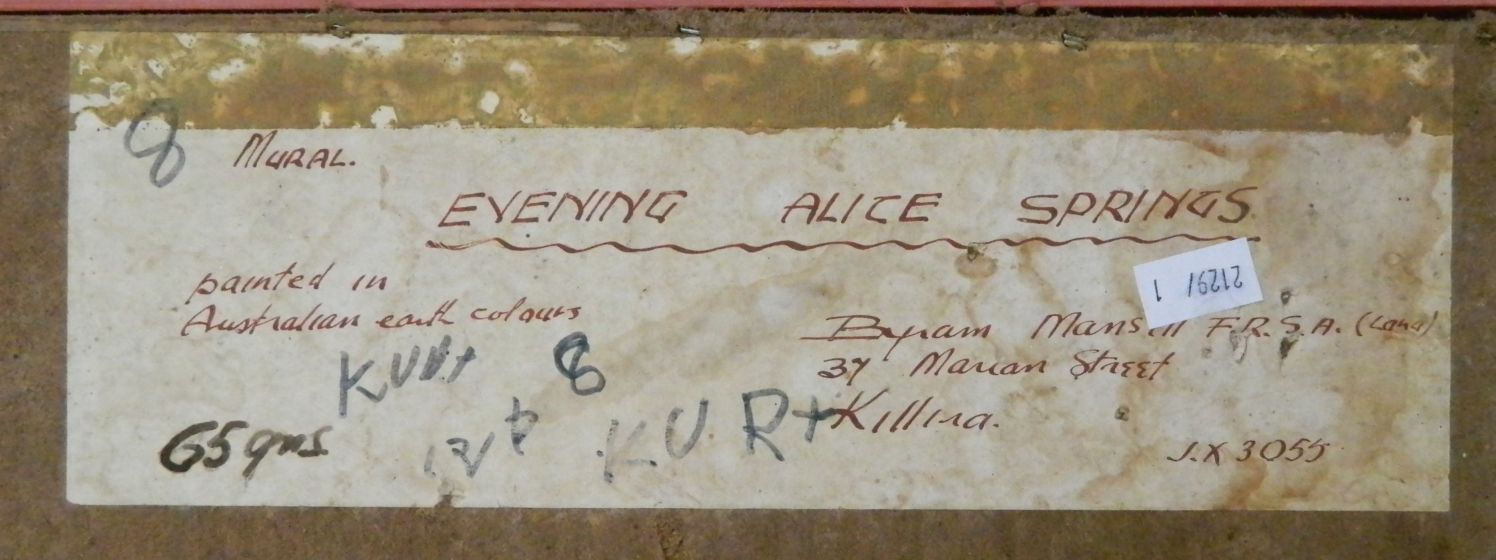 8
MURAL.
EVENING ALICE SPRINGS
painted in
Australian earth colours
21291 1
Byram Mansell F.R.S.A. (Lond)
37 Marian Street
Killara.
J.X 3055
KURT 8
65 gns.
KURt